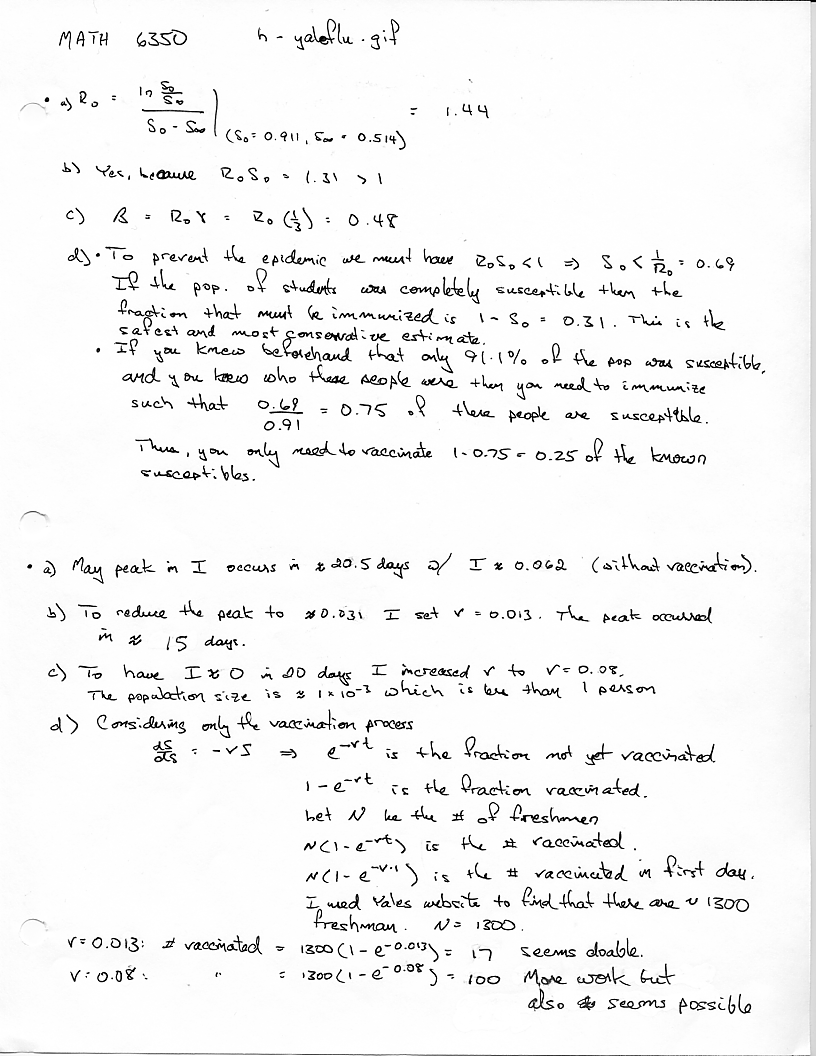 MATH 6350 h - yaleflu.gif
• a) R₀ = ln S₀/S∞ / S₀ - S∞ | (S₀ = 0.911, S∞ = 0.514) = 1.44
b) Yes, because R₀S₀ = 1.31 > 1
c) β = R₀γ = R₀(1/3) = 0.48
d) • To prevent the epidemic we must have R₀S₀<1 ⇒ S₀ < 1/R₀ = 0.69
If the pop. of students was completely susceptible then the
fraction that must be immunized is 1 - S₀ = 0.31. This is the
safest and most conservative estimate.
• If you knew beforehand that only 91.1% of the pop was susceptible,
and you knew who these people were then you need to immunize
such that 0.69/0.91 = 0.75 of these people are susceptible.
Thus, you only need to vaccinate 1-0.75 = 0.25 of the known
susceptibles.
• a) May peak in I occurs in ≈ 20.5 days w/ I ≈ 0.062 (without vaccination).
b) To reduce the peak to ≈0.031 I set v = 0.013. The peak occurred
in ≈ 15 days.
c) To have I≈0 in 20 days I increased v to v=0.08.
The population size is ≈ 1×10⁻³ which is less than 1 person
d) Considering only the vaccination process
dS/ds = -vS ⇒ e^-vt is the fraction not yet vaccinated
1 - e^-vt is the fraction vaccinated.
Let N be the # of freshmen
N(1 - e^-vt) is the # vaccinated.
N(1 - e^-v·1) is the # vaccinated in first day.
I used Yales website to find that there are ~ 1300
freshman. N = 1300.
v=0.013: # vaccinated = 1300(1 - e^-0.013) = 17 seems doable.
v=0.08: " = 1300(1 - e^-0.08) = 100 More work but
also seems possible